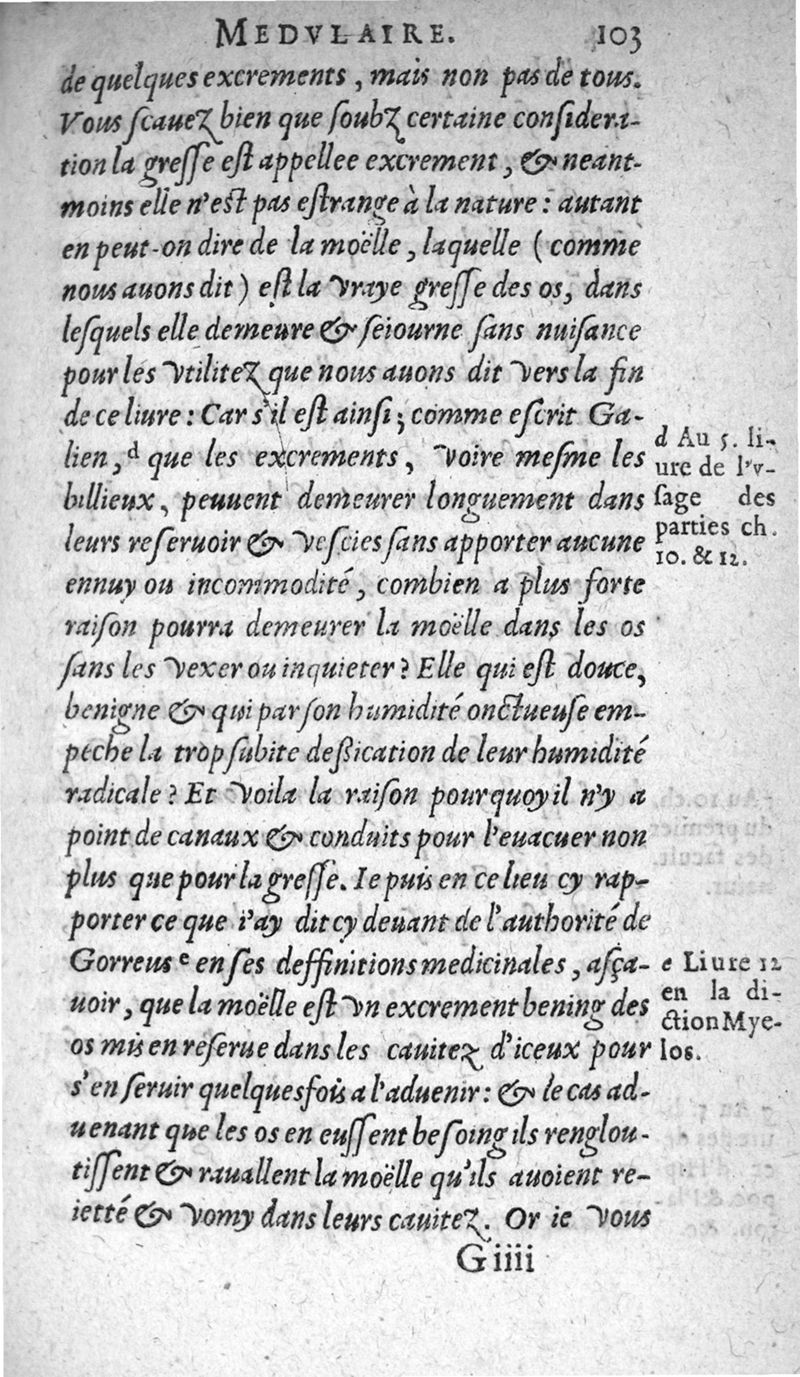 MEDVLAIRE. 103
de quelques excrements, mais non pas de tous.
Vous sçauez bien que ſoubz certaine conſidera-
tion la greſſe eſt appellee excrement, & neant-
moins elle n'eſt pas eſtrange à la nature : autant
en peut-on dire de la moëlle, laquelle (comme
nous auons dit) eſt la vraye greſſe des os, dans
leſquels elle demeure & ſeiourne ſans nuiſance
pour les vtilitez que nous auons dit vers la fin
de ce liure : Car s'il eſt ainſi; comme eſcrit Ga-
lien,ᵈ que les excrements, voire meſme les
billieux, peuuent demeurer longuement dans
leurs reſeruoir & veſcies ſans apporter aucune
ennuy ou incommodité, combien a plus forte
raiſon pourra demeurer la moëlle dans les os
ſans les vexer ou inquieter ? Elle qui eſt douce,
benigne & qui par ſon humidité onctueuſe em-
peche la trop ſubite deſſication de leur humidité
radicale ? Et voila la raiſon pourquoy il n'y a
point de canaux & conduits pour l'euacuer non
plus que pour la greſſe. Ie puis en ce lieu cy rap-
porter ce que i'ay dit cy deuant de l'authorité de
Gorreusᵉ en ſes deffinitions medicinales, aſça-
uoir, que la moëlle eſt vn excrement bening des
os mis en reſerue dans les cauitez d'iceux pour
s'en ſeruir quelquesfois a l'aduenir : & le cas ad-
uenant que les os en euſſent beſoing ils renglou-
tiſſent & rauallent la moëlle qu'ils auoient re-
ietté & vomy dans leurs cauitez. Or ie vous
G iiii
d Au 5. li-
ure de l'v-
ſage des
parties ch.
10. & 12.
e Liure 12
en la di-
ction Mye-
los.